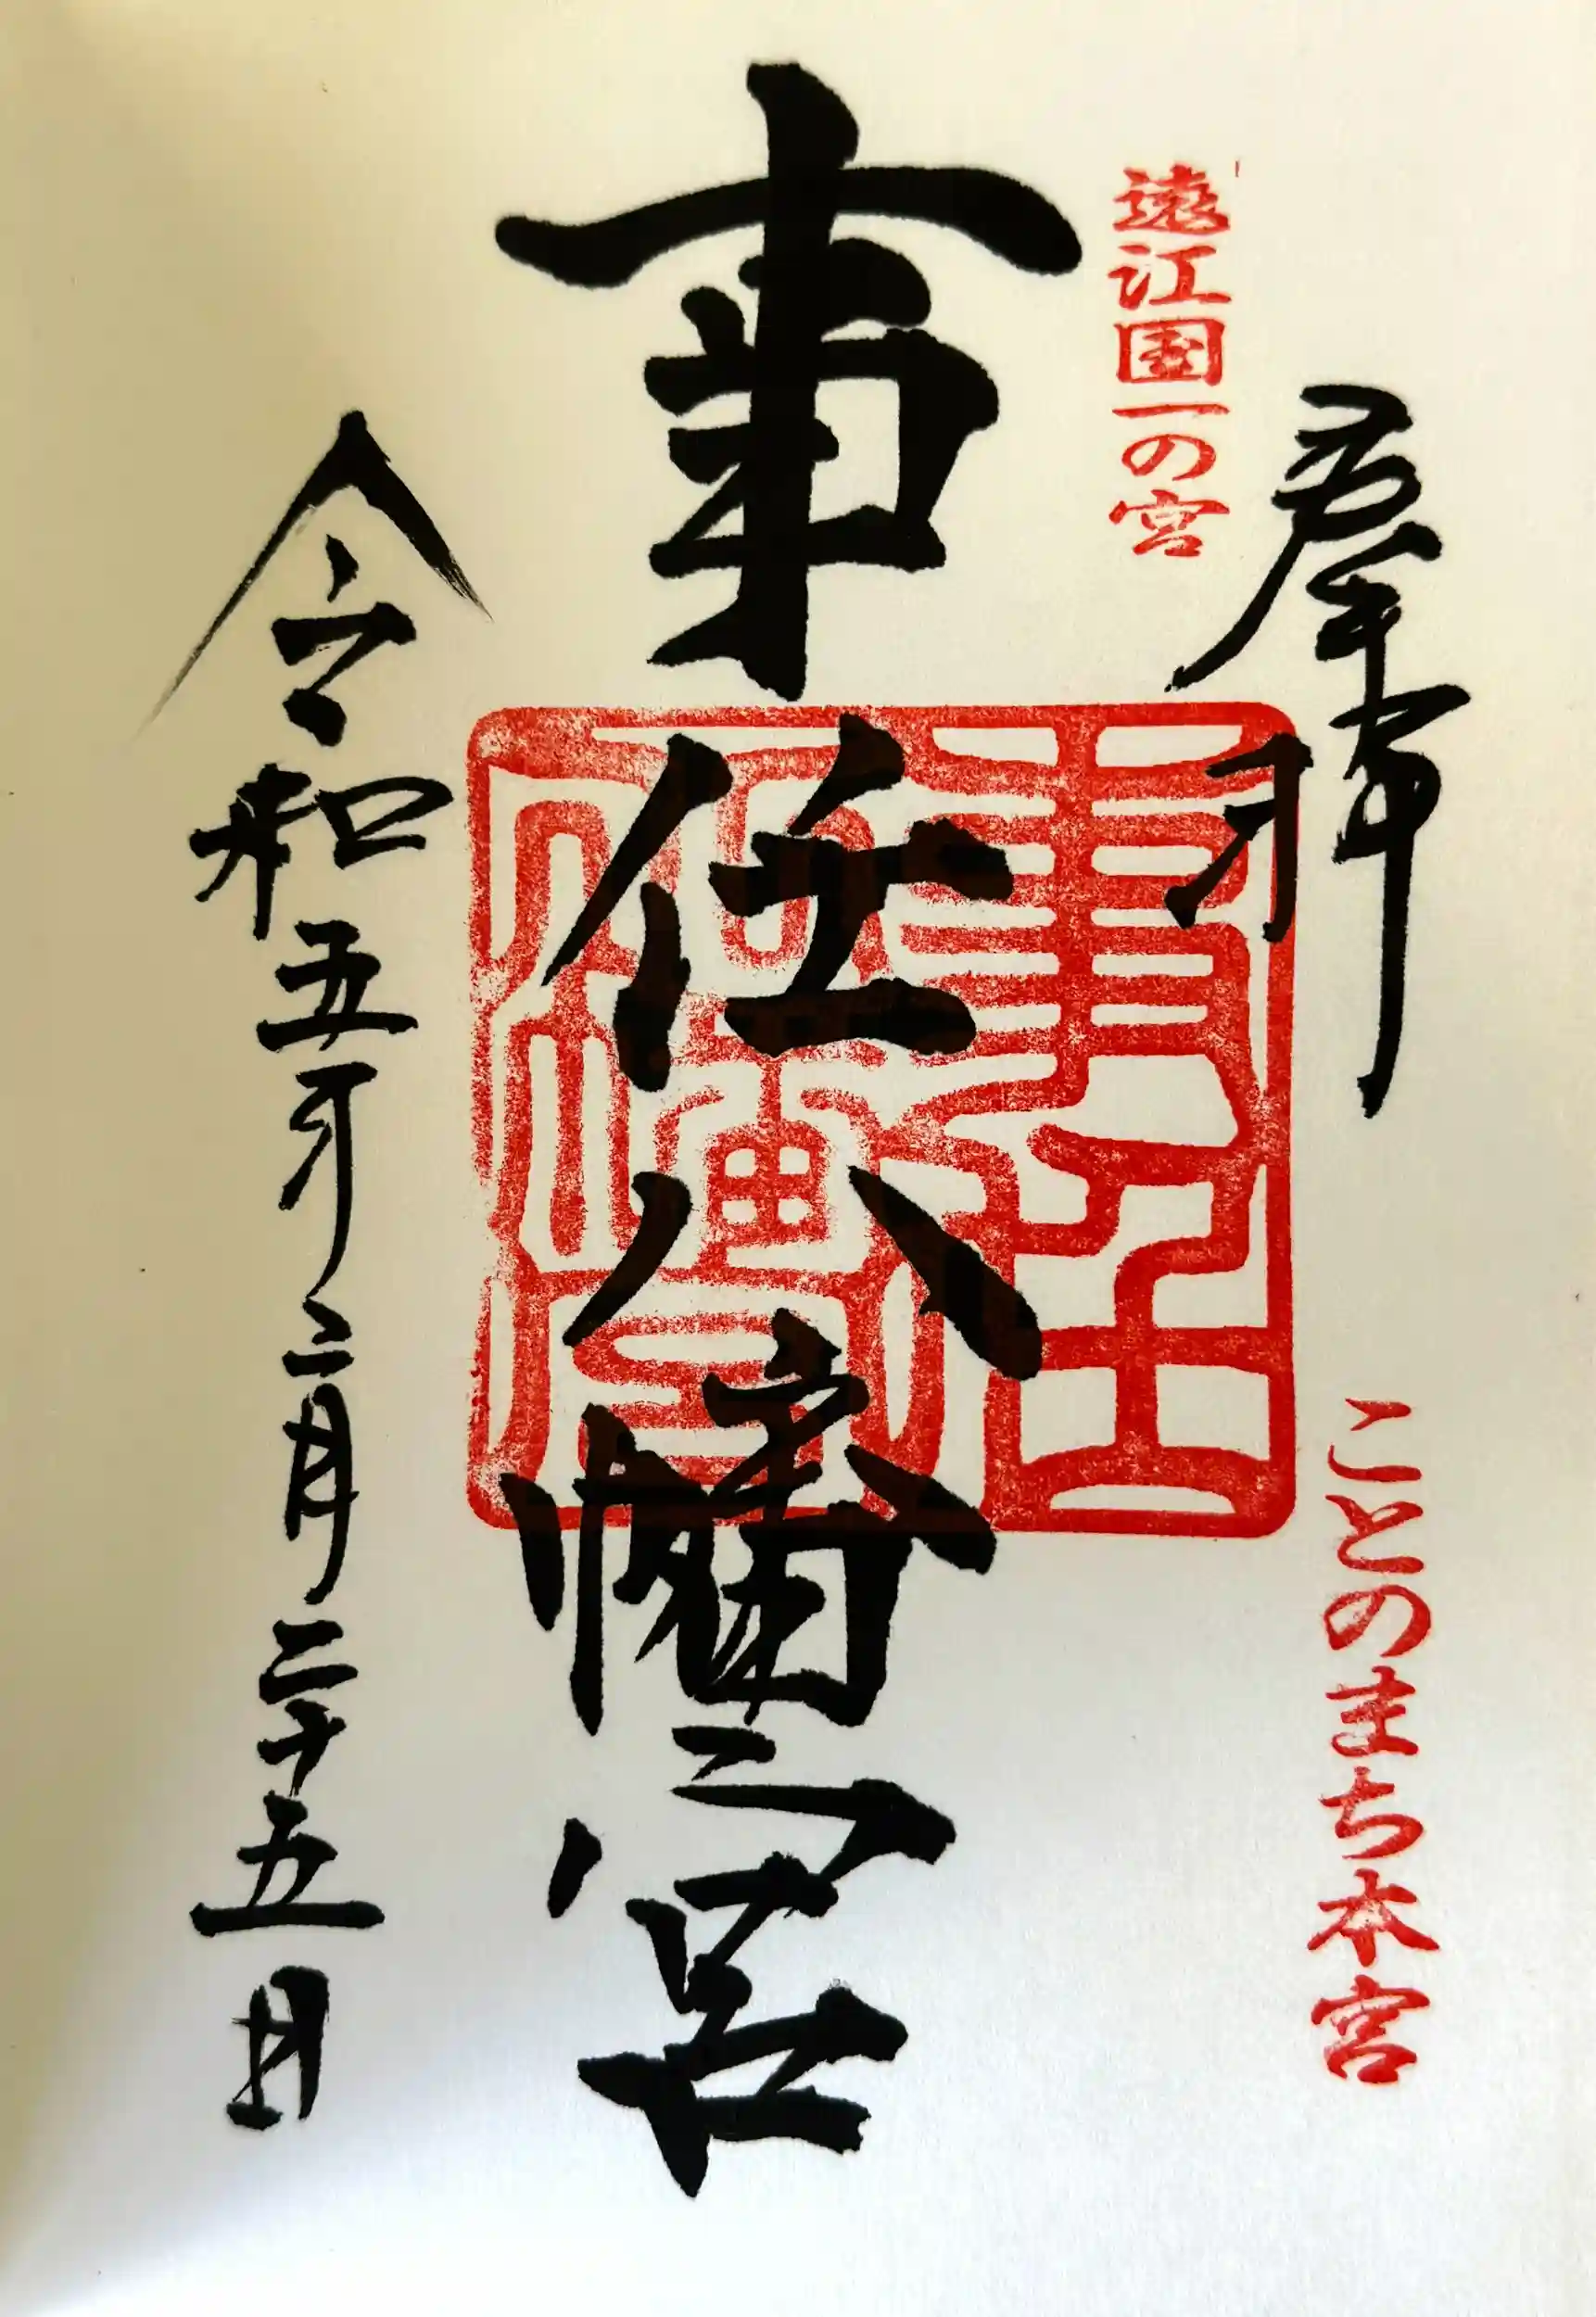 奉拝
遠江国一の宮
ことのまち本宮
事任八幡宮
令和五年二月二十五日